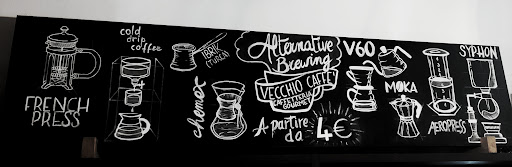 FRENCH
PRESS
cold
drip
coffee
IBRIK
chemex
Alternative
Brewing
VECCHIO CAFFÈ
CAFFETTERIA
GOURMET
A partire
da 4€
V60
MOKA
AEROPRESS
SYPHON